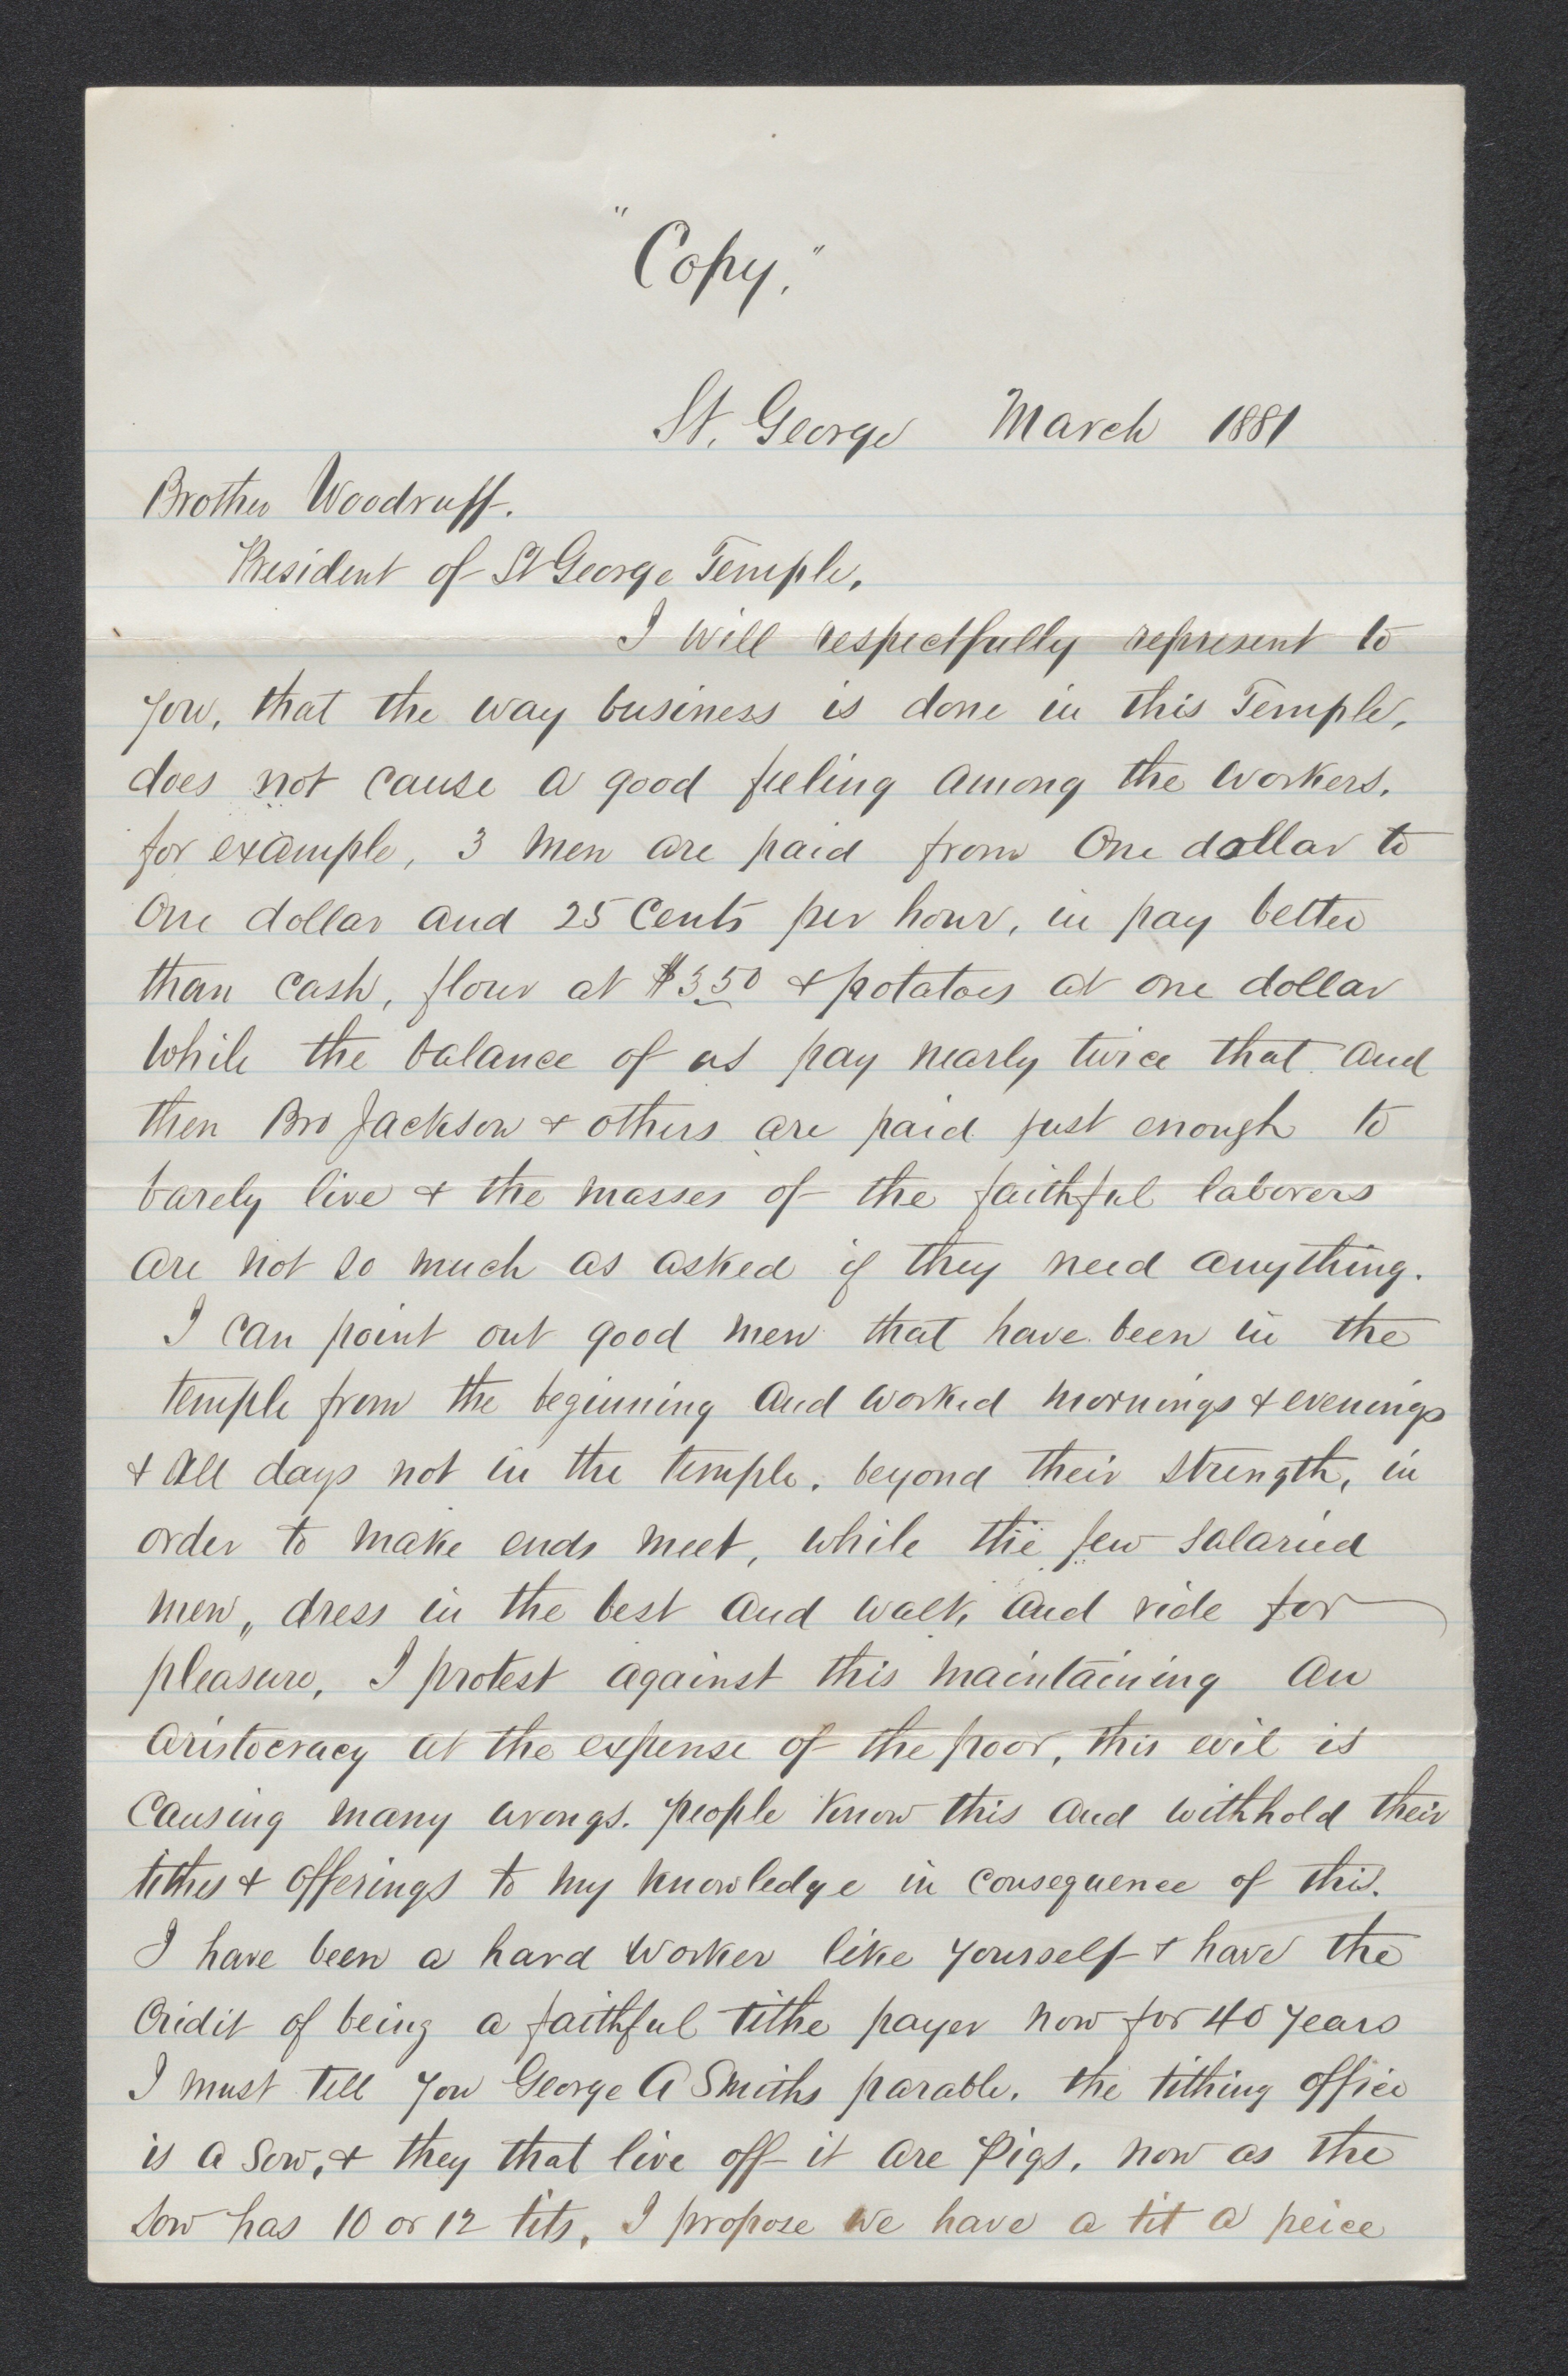 "Copy."
St. George March 1881
Brother Woodruff.
President of St George Temple,
I will respectfully represent to
you, that the way business is done in this Temple,
does not cause a good feeling among the workers.
for example, 3 men are paid from One dollar to
One dollar and 25 Cents per hour, in pay better
than cash, flour at $3.50 & potatoes at one dollar
while the balance of us pay nearly twice that and
then Bro Jackson & others are paid just enough to
barely live & the masses of the faithful laborers
are not so much as asked if they need anything.
I can point out good men that have been in the
temple from the beginning and worked mornings & evenings
& all days not in the temple, beyond their strength, in
order to make ends meet, while the few salaried
men, dress in the best and walk and ride for
pleasure, I protest against this maintaining an
aristocracy at the expense of the poor, this evil is
causing many wrongs. people know this and withhold their
tithes & offerings to my knowledge in consequence of this.
I have been a hard worker like yourself & have the
credit of being a faithful tithe payer now for 40 years
I must tell you George A Smiths parable. the tithing office
is a sow, & they that live off it are Pigs, now as the
sow has 10 or 12 tits, I propose we have a tit a peice